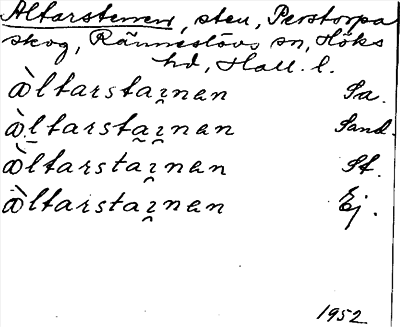 Altarstenen, sten, Perstorpa
skog, Ränneslövs sn, Höks
hd, Hall. l.
àltarstaı̯nan Sa.
àltarstaı̯nan Sand.
àltarstaı̯nan St.
àltarstaı̯nan Ej.
1952